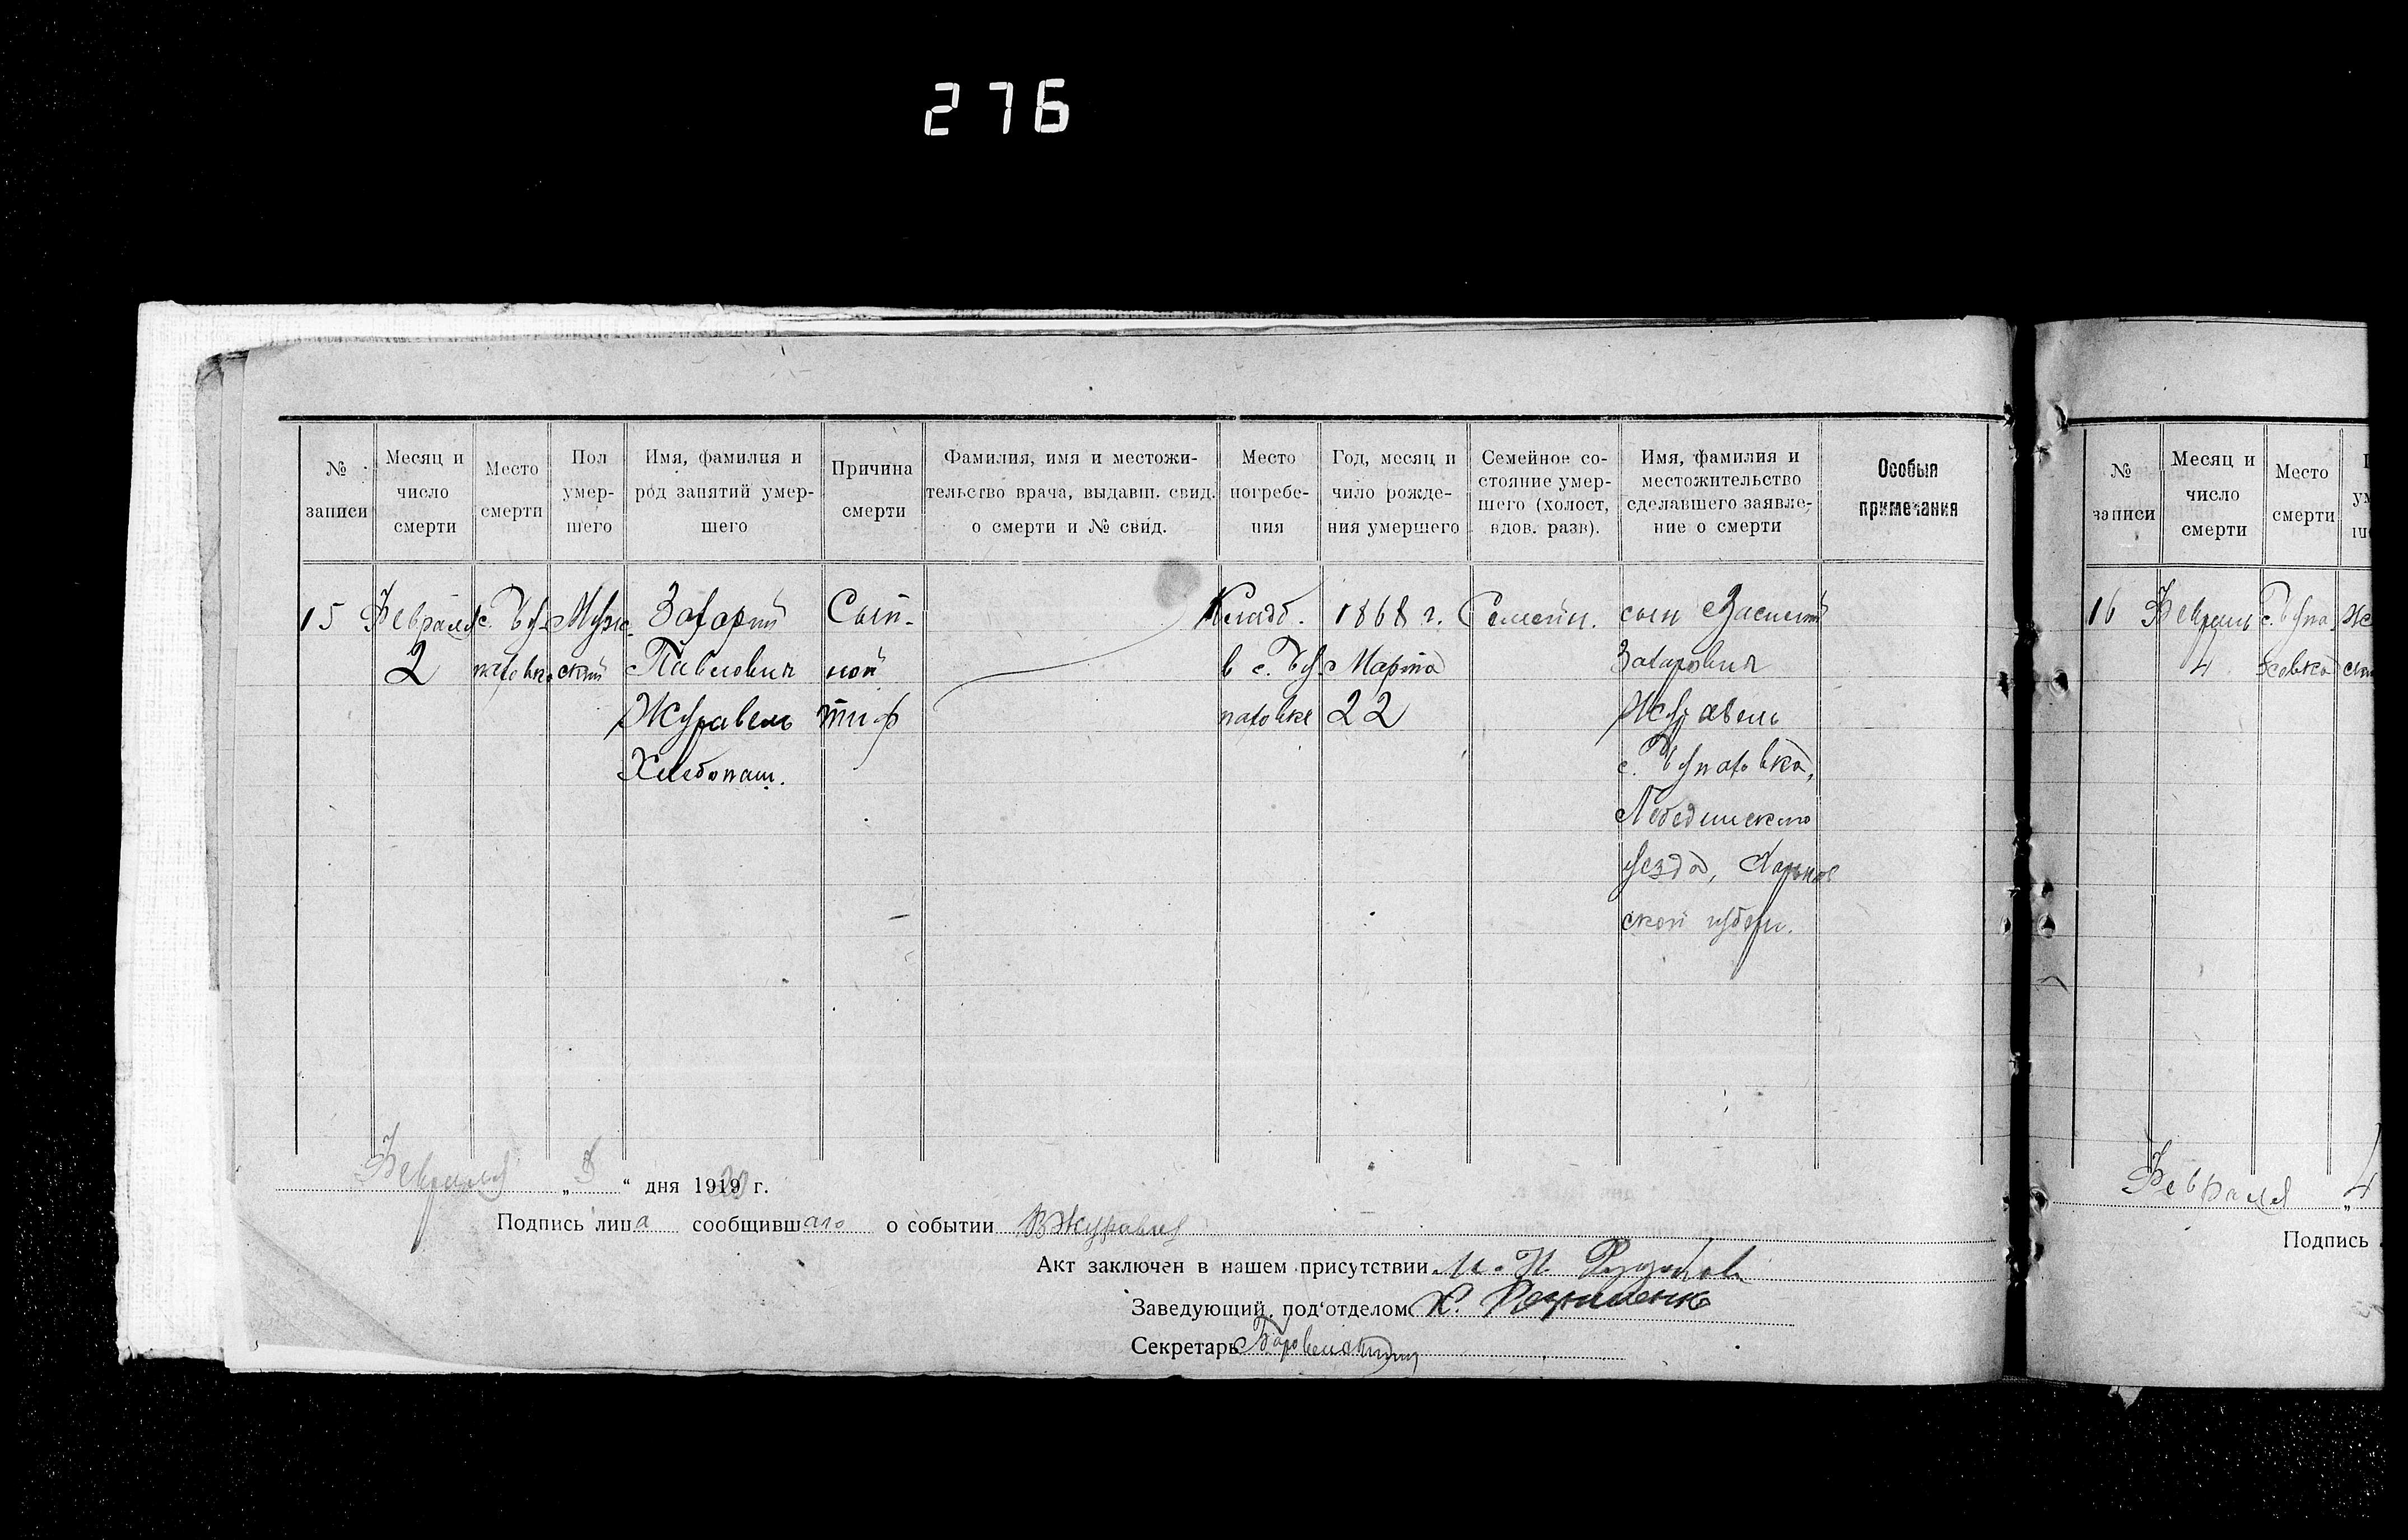 276
№ записи
Месяц и число смерти
Место смерти
Пол умер- шего
Имя, фамилия и род занятий умер- шего
Причина смерти
Фамилия, имя и местожи- тельство врача, выдавш. свид. о смерти и № свид.
Место погребе- ния
Год, месяц и чило рожде- ния умершего
Семейное со- стояние умер- шего (холост, вдов. разв).
Имя, фамилия и местожительство сделавшего заявле- ние о смерти
Особыя примечания
15
Февраля
2
с. Бу-
патовка
Муж-
ский
Захарий
Павлович
Журавель
Хлебопаш.
Сып-
ной
тиф
Кладб.
в с. Бу-
1868 г.
Марта
22
Семейн.
сын
Захарович
Журавель
с.
Лебединского
уезда, Харьков
ской губерн.
Февраля „ “ дня 1919 г.
Подпись лица сообщившаго о событии ВЖуравль
Акт заключен в нашем присутствии
Заведующий под‘отделом
Секретарь
№ записи
Месяц и число смерти
Место смерти
16
Февраль
4
Февраля „4
Подпись